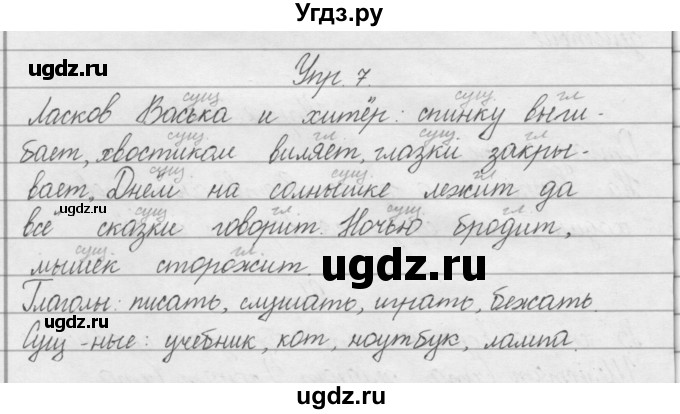 Угдз.ру
Упр. 7.
сущ. сущ. гл.
Ласков Васька и хитёр: спинку выги-
сущ. гл. сущ. гл.
бает, хвостиком виляет, глазки закры-
сущ. сущ. гл.
вает. Днём на солнышке лежит да
сущ. гл. сущ. гл.
всё сказки говорит. Ночью бродит,
сущ. гл.
мышек сторожит.
Глаголы: писать, слушать, играть, бежать.
Сущ-ные: учебник, кот, ноутбук, лампа.
ugdz.ru
ugdz.ru
ugdz.ru
ugdz.ru
ugdz.ru
ugdz.ru
ugdz.ru